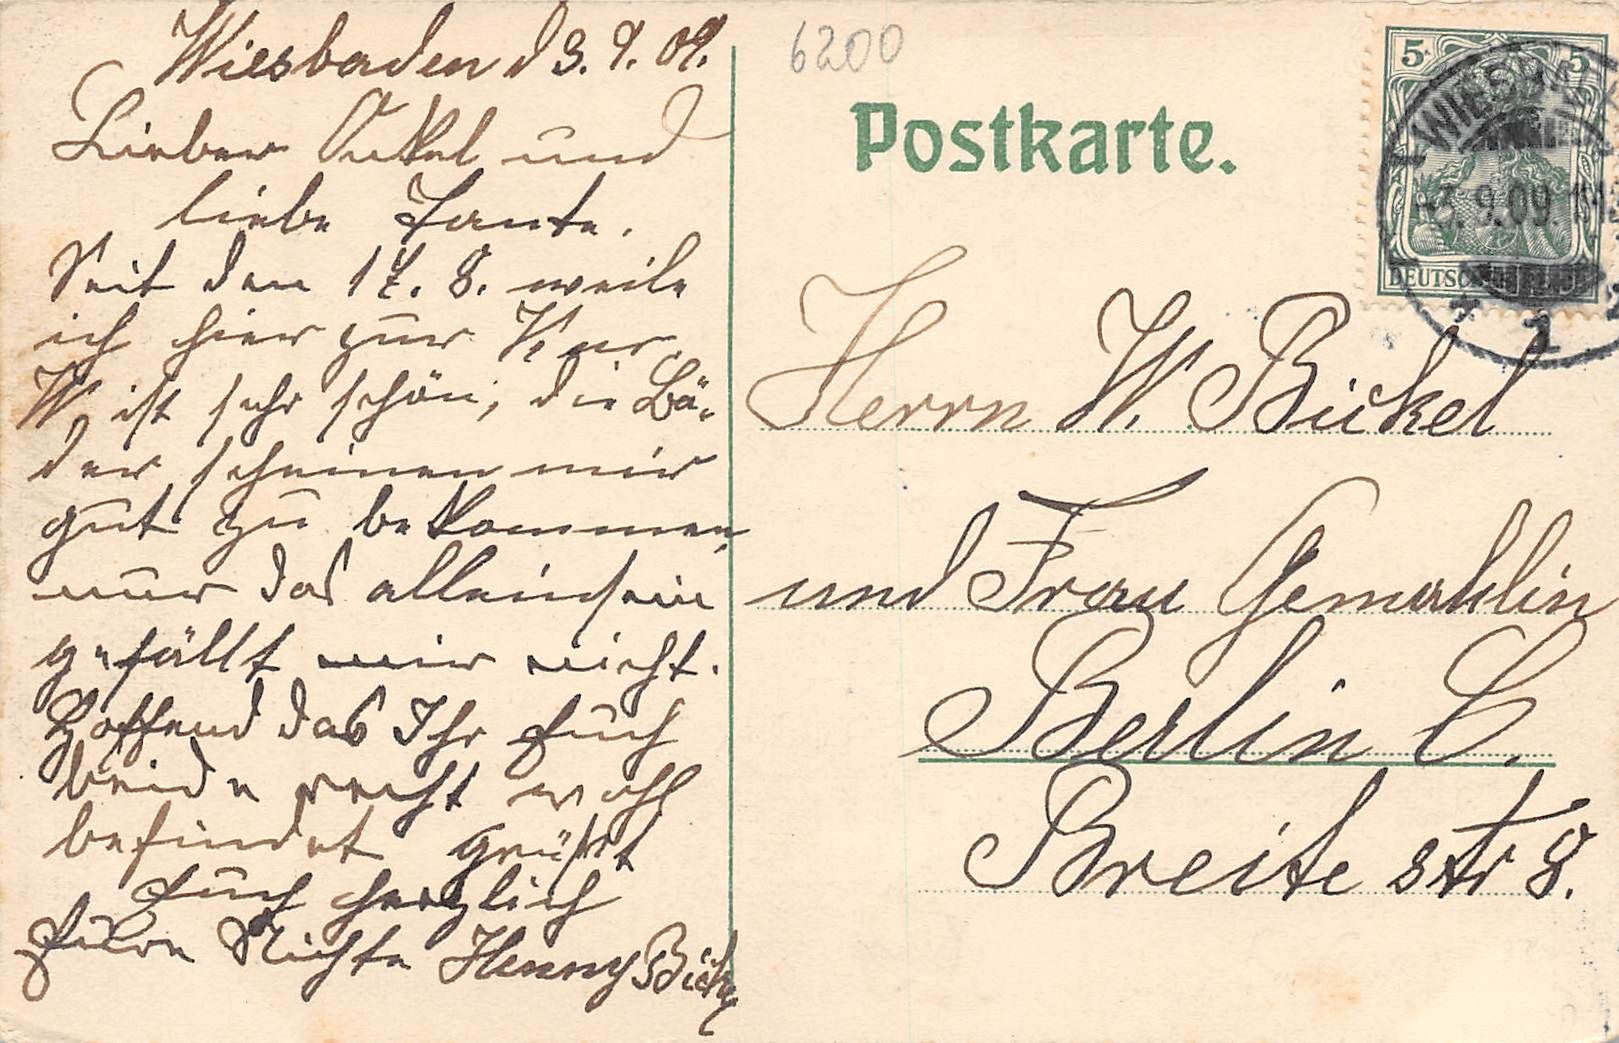 Wiesbaden d 3. 9. 09.
Lieber Onkel und
liebe Tante.
Seit den 17. 8. weile
ich hier zur Kur.
W. ist sehr schön, die Bä-
der scheinen mir
gut zu bekommen,
nur das alleinsein
gefällt mir nicht.
Hoffend das Ihr Euch
beide recht wohl
befindet grüßt
Euch herzlich
Eure Nichte Henny Bickel
6200
Postkarte.
5 5
WIESBADEN
3. 9.09 11-12
DEUTSCHES REICH
* 1 *
Herrn W. Bickel
und Frau Gemahlin
Berlin C.
Breite str 8.